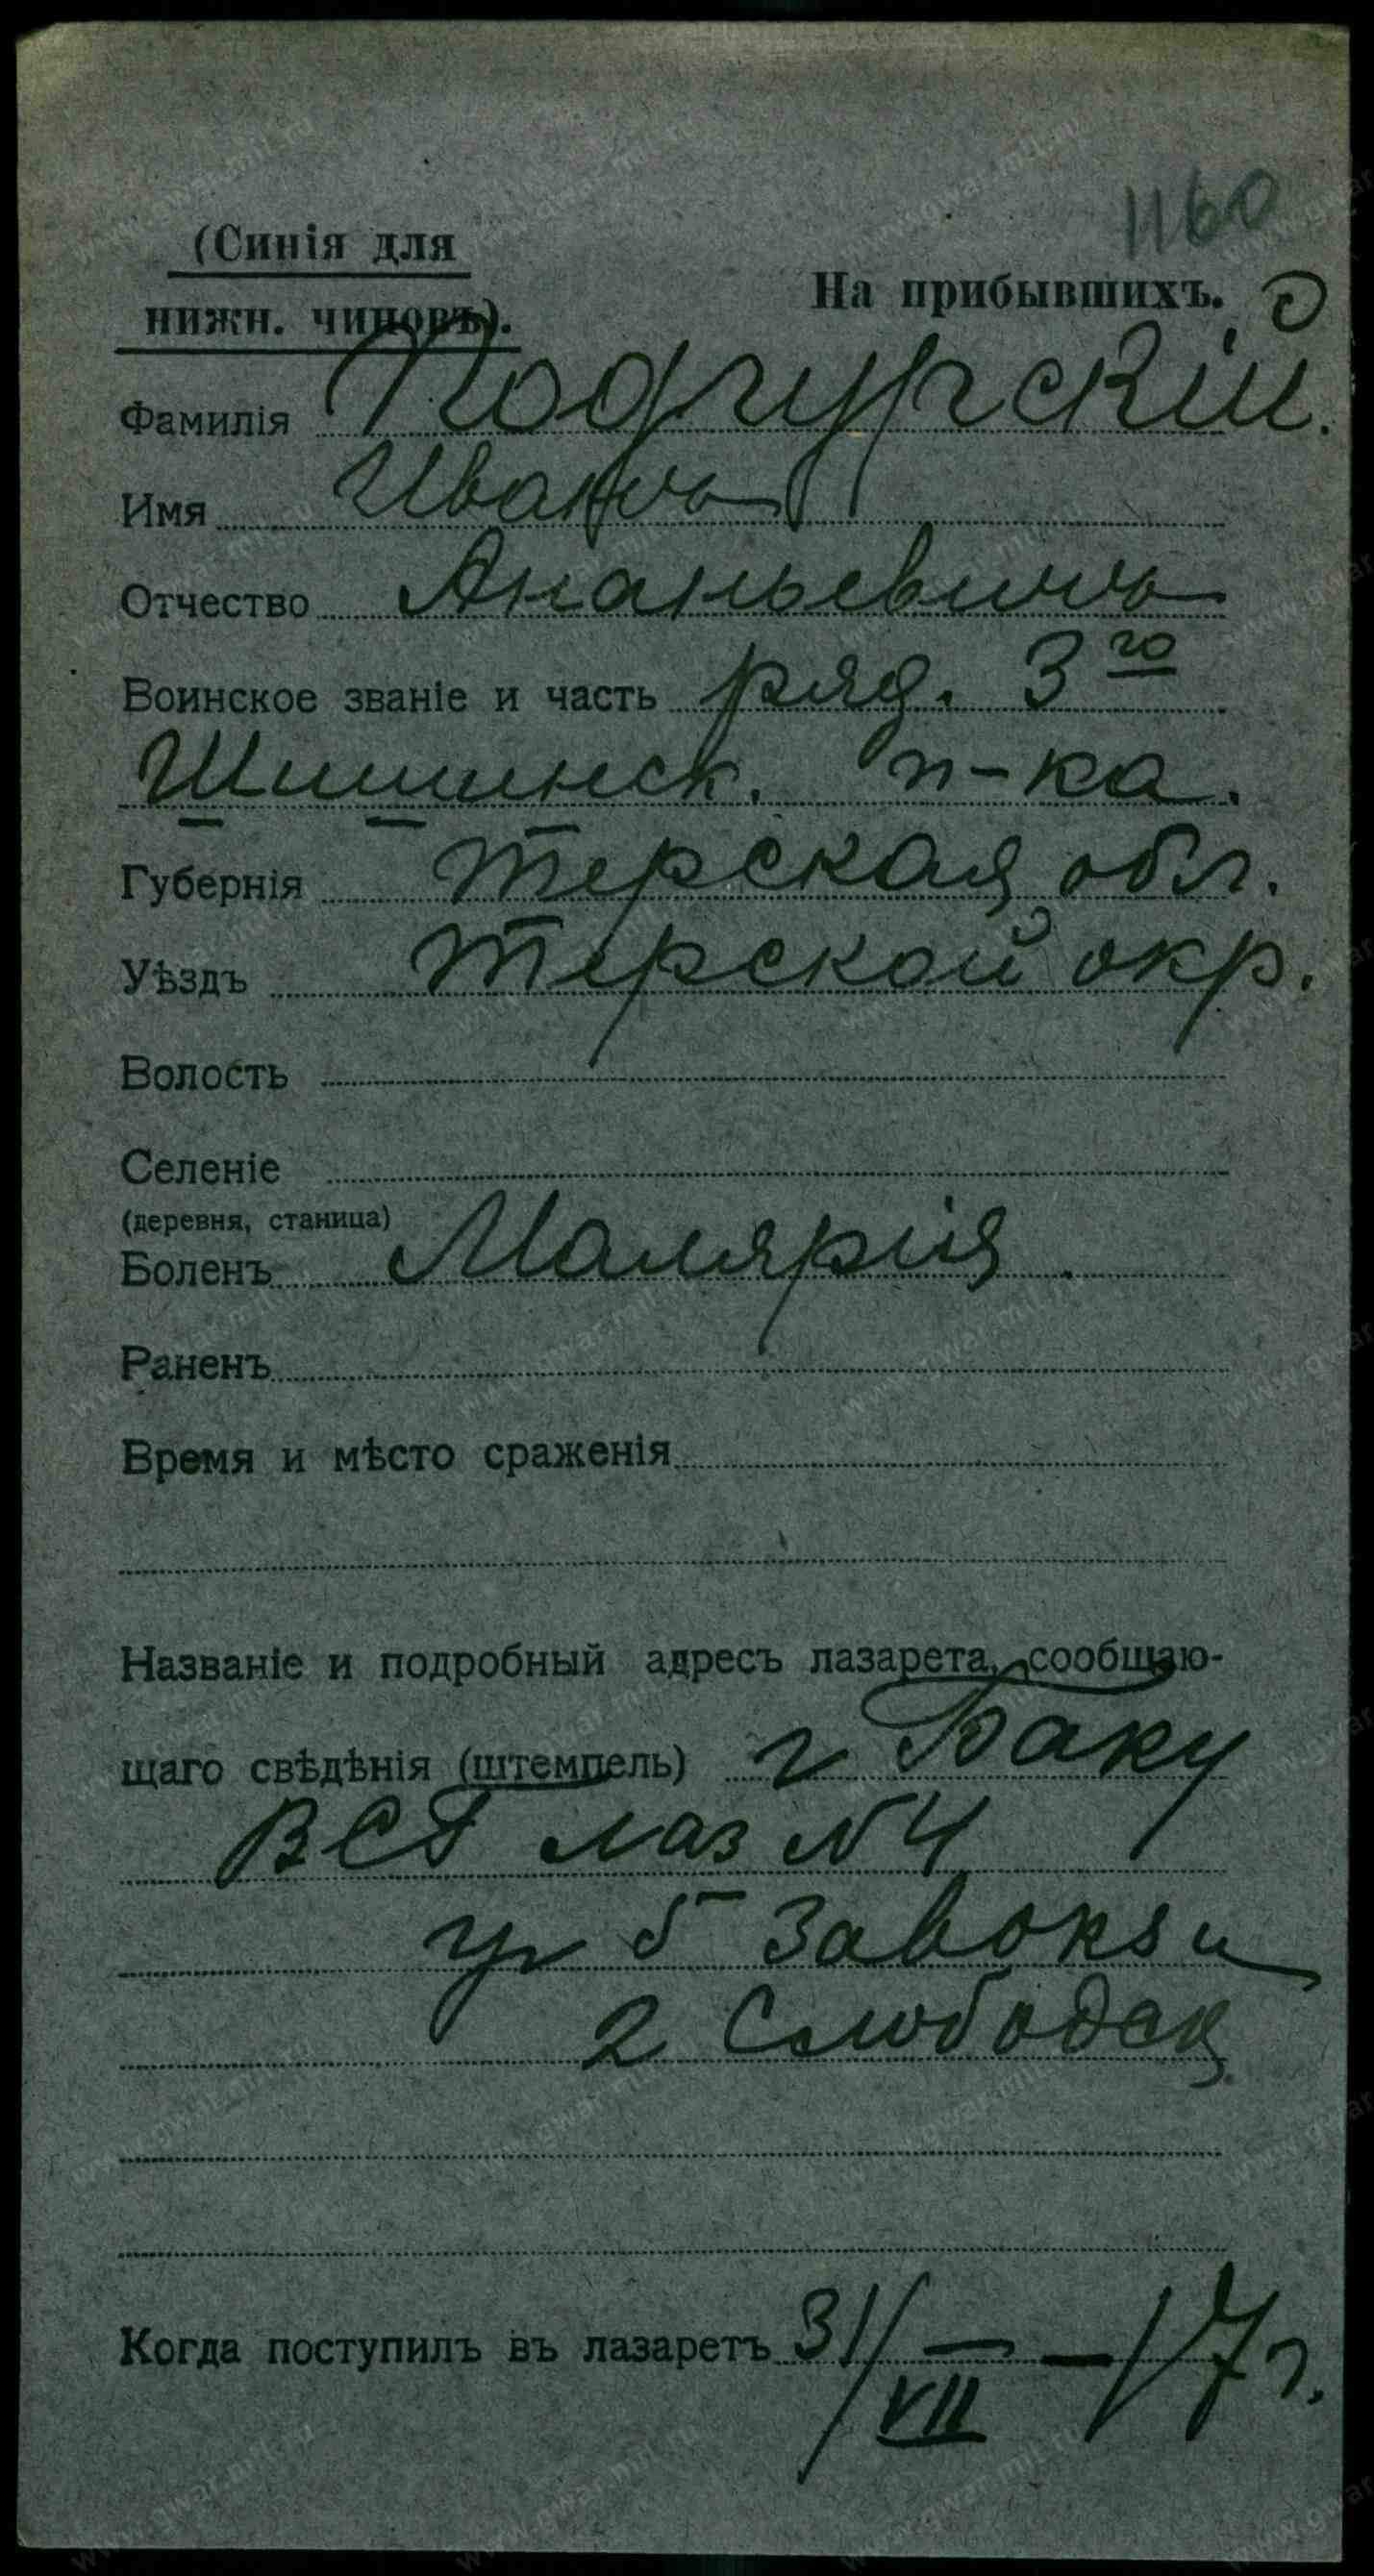 1160
(Синія для
нижн. чиновъ).
На прибывшихъ.
Фамилія Подгурскій.
Имя Иванъ
Отчество Ананьевичъ
Воинское званіе и часть ряд. 3го
Шишинск. п-ка.
Губернія Терская обл.
Уѣздъ Терской окр.
Волость
Селеніе
(деревня, станица)
Боленъ Малярия
Раненъ
Время и мѣсто сраженія
Названіе и подробный адресъ лазарета, сообщаю-
щаго свѣдѣнія (штемпель) г Баку
ВСГ лаз N 4
уг 5 Завокз и
2 Слободск
Когда поступилъ въ лазаретъ 31/VII – 17 г.